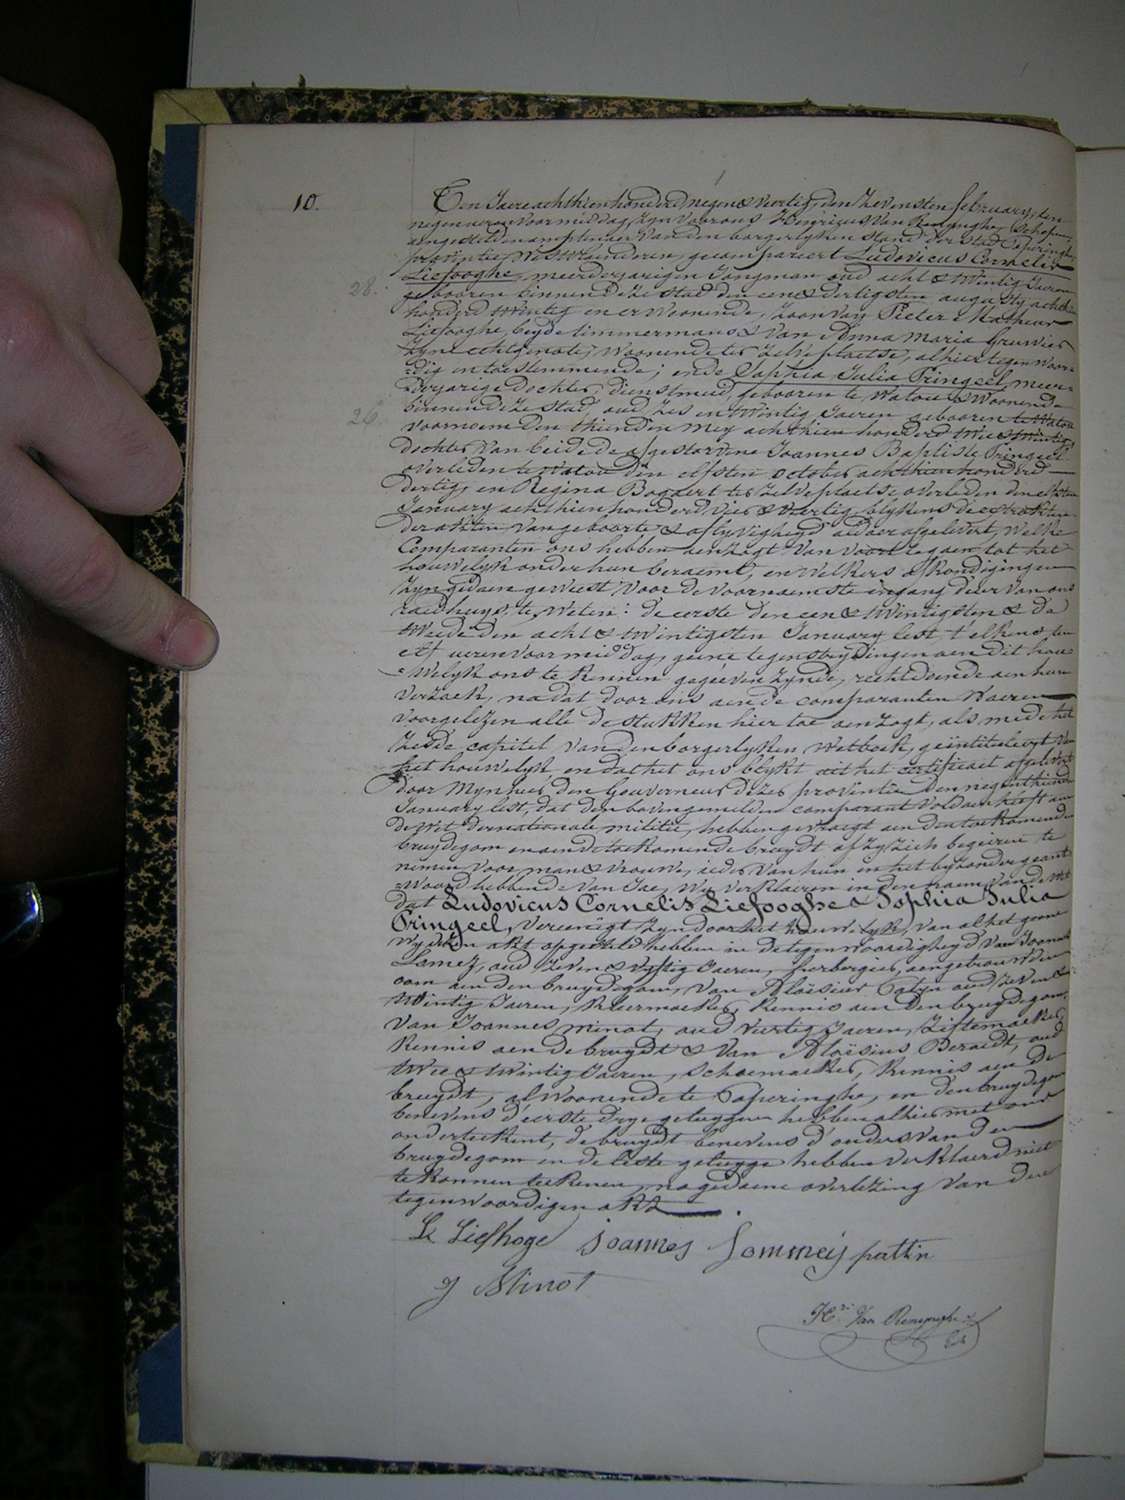 10.
Ten Jaere achthien honderd negen & veertig, den zevensten february, ten
negen uren voormiddag, zyn voor ons Henricus Van Renynghe, Schepen,
aengestelden amptenaer van den borgerlyken stand der stad Poperinghe,
provintie Westvlaenderen, gecompareert Ludovicus Cornelis
Liefooghe, meerderjarigen Jongman oud acht & twintig Jaeren
28.
gebooren binnen deze stad den een & dertigsten augusty achthien
honderd twintig en er woonende, zoon van Pieter Matheus
Liefooghe, beyde timmermans & van Anna Maria Gruwier
zyne echtgenote, woonende ter zelve plaetse, alhier tegenwoor-
=dig en toestemmende; ende Sophia Julia Pringeel, meer=
=derjarige dochter, dienstmeid, gebooren te Watou & woonende
26.
binnen deze stad, oud zes en twintig Jaeren gebooren te Watou
voornoemd den thienden mey achthien honderd twee & twintig,
dochter van beide de afgestorvene Joannes Baptiste Pringeel
overleden te Watou den elfsten october achthien honderd
dertig, en Regina Bogaert ter zelve plaetse overleden den elfsten
January achthien honderd vier & veertig, blykens de extrakten
der akten van geboorte & aflyvigheyd aldaer afgelevert, welke
Comparanten ons hebben verzogt van voort te gaen tot het
houwelyk onder hun beraemt, en welkers afkondigingen
zyn gedaen geweest voor de voornaemste ingang deur van ons
raedhuys, te weten: de eerste den een & twintigsten & de
tweede den acht & twintigsten January lest, t'elkens ten
elf ueren voormiddag, geene tegenstrydingen aen dit hou=
=welyk ons te kennen gegeven zynde, rechtdoende aen hun
verzoek, na dat door ons aen de comparanten waeren
voorgelezen alle de stukken hier toe aenzogt, als mede het
zesde capitel van den borgerlyken wetboek, geïntituleert van
het houwelyk, en dat het ons blykt uit het certificaet afgelevert
door Mynheer den Gouverneur dezer provintie den negenthiende
January lest, dat den bovengemelden comparant voldaen heeft aen
de wet der nationale militie, hebben gevraegt aen den toekomenden
bruydegom en aen de toekomende bruydt of zy zich begeiren te
nemen voor man & vrouwe, ieder van hun en het byzonder geant=
=woord hebbende van Jae, wy verklaeren in den naem van de wet
dat Ludovicus Cornelis Liefooghe & Sophia Julia
Pringeel, vereenigt zyn door het houwelyk, van al het geene
wy dezen akt opgesteld hebben in de tegenwoordigheyd van Joannes
Lomez, oud zeven & vyftig Jaeren, herbergier, aengetrouwden
oom aen den bruydegom, van Aloïsius Patyn oud zeven &
twintig Jaeren, kleermaeker, kennis aen den bruydegom,
van Joannes Minot, oud veertig Jaeren, ziftemaeker
kennis aen de bruydt & van Aloïsius Beraedt, oud
twee & twintig Jaeren, schoenmaeker, kennis aen de
bruydt, al woonende te Poperinghe, en den bruydegom
benevens d'eerste drye getuygen hebben alhier met ons
onderteekent, de bruydt benevens d'ouders van den
bruydegom en de leste getuyge hebben verklaerd niet
te konnen teekenen, na gedaene overlezing van den
tegenwoordigen akt.
L. Liefhoge Joannes Lommeij pattin
J Minot
Hri Van Renynghe